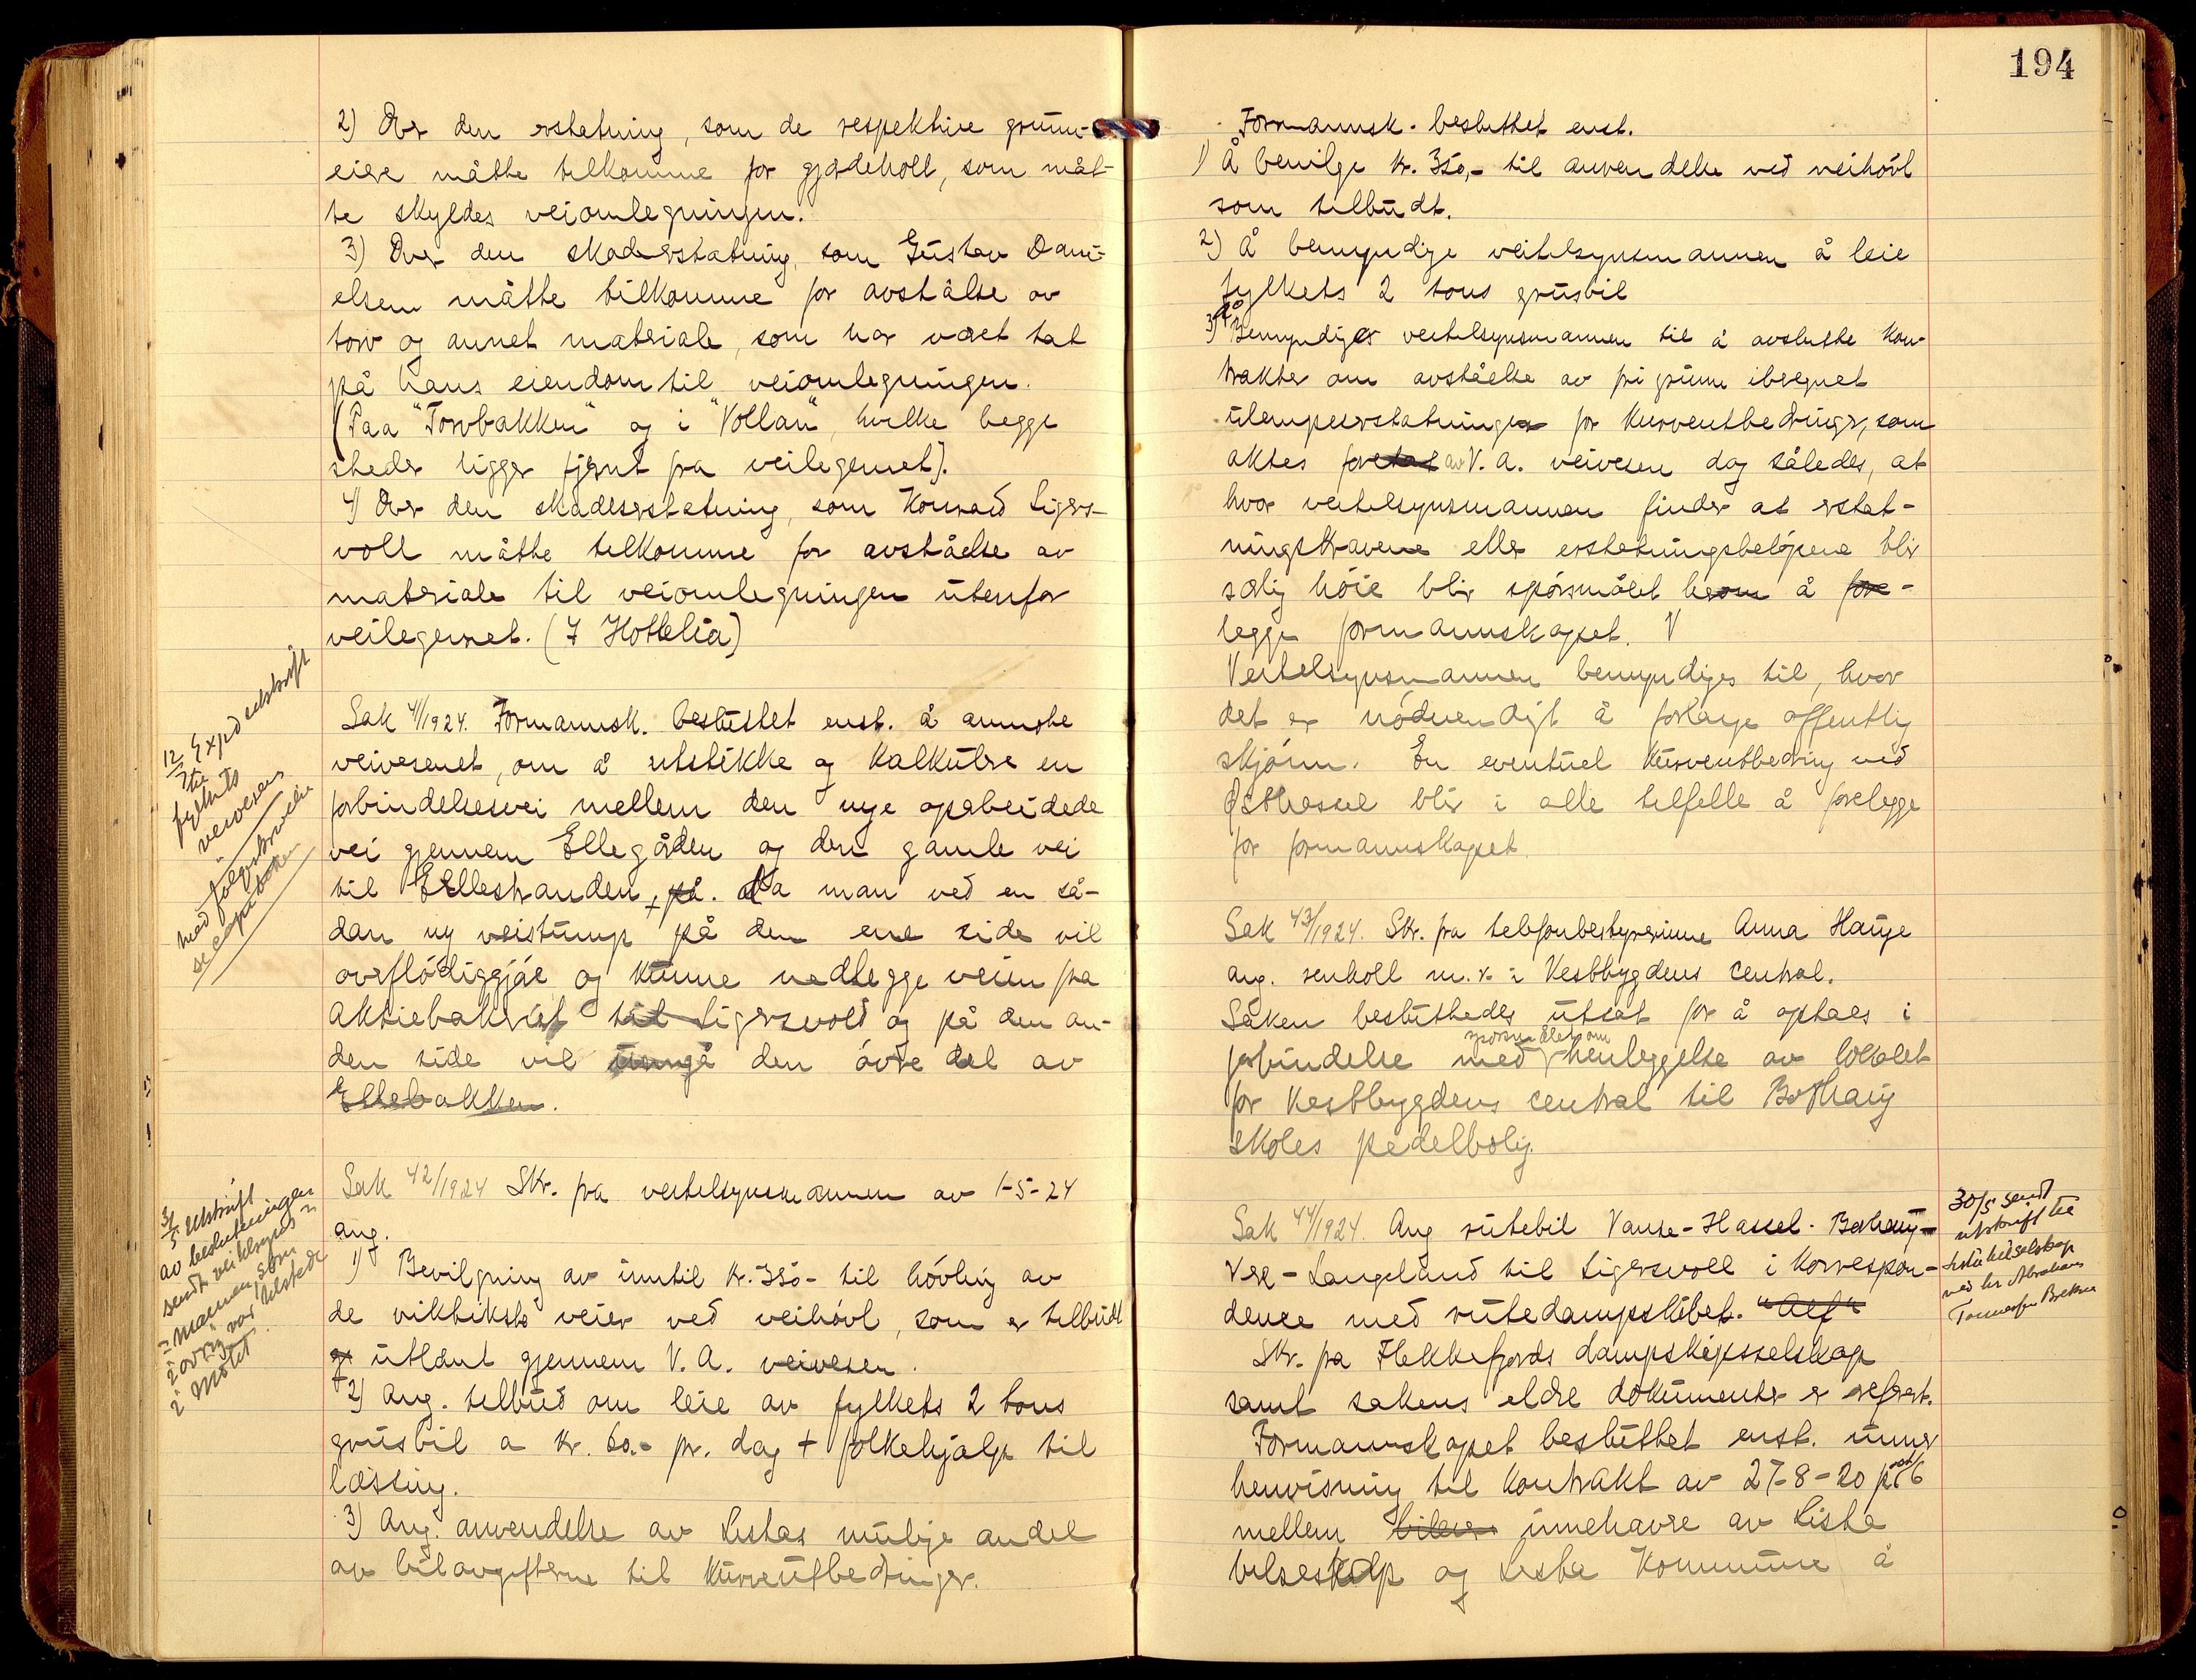 2) Over den erstatning, som de respektive grunn-
eiere måtte tilkomme for gjærdehold, som måt-
te skyldes veiomlegningen.
3) Over den skadeerstatning, som Gustav Dani-
elsen måtte tilkomme for avståelse av
torv og annet materiale, som har været tat
på hans eiendom til veiomlegningen.
(Paa "Torvbakken" og i "Vollan", hvilke begge
steder ligger fjernt fra veilegemet).
4) Over den skadeserstatning, som Konrad Sigers-
voll måtte tilkomme for avståelse av
materiale til veiomlegningen utenfor
veilegemet. (I Hottelia)
12/7 Expd utskrift
til
fylkets
veivesen
med følgeskrivelse
se kopiboken
Sak 41/1924. Formannsk. besluttet enst. å anmode
veivesenet, om å utstikke og kalkulere en
forbindelsesvei mellem den nye oparbeidede
vei gjennem Ellegården og den gamle vei
til Ellestranden, på. da man ved en så-
dan ny veistump på den ene side vil
overflødiggjøre og kunne nedlegge veien fra
Aktiebakeriet til Sigersvold og på den an-
den side vil undgå den øvre del av
Ellebakken.
31/5 utskrift
av beslutningen
sendt veitilsyns-
mannen, som
i övrig var tilstede
i mötet.
Sak 42/1924 Skr. fra veitilsynsmannen av 1-5-24
ang.
1) Bevilgning av inntil kr. 350- til hövling av
de viktikste veier ved veihövl, som er tilbudt
og utlånt gjennem V. A. veivesen.
2) Ang. tilbud om leie av fylkets 2 tons
grusbil a kr. 60.- pr. dag + folkehjælp til
læssing.
3) Ang. anvendelse av Listas mulige andel
av bilavgifterne til kurveutbedringer.
194
Formannsk. besluttet enst.
1) Å bevilge kr. 350,- til anvendelse ved veihövl
som tilbudt.
2) Å bemyndige veitilsynsmannen å leie
fylkets 2 tons grusbil
3) Å Bemyndiges veitilsynsmannen til å avslutte kon-
trakter om avståelse av fri grunn iberegnet
ulempeerstatningen for kurveutbedringer, som
aktes foretat av V. A. veivesen dog således, at
hvor veitilsynsmannen finder at erstat-
ningskravene eller erstatningsbelöpene blir
særlig höie blir spörsmålet herom å fore-
legge formannskapet. V
Veitilsynsmannen bemyndiges til, hvor
det er nödvendigt å forlange offentlig
skjönn. En eventuel kurveutbedring ved
Östhassel blir i alle tilfelle å forelegge
for formannskapet.
Sak 43/1924. Skr. fra telefonbestyrerinne Anna Hauge
ang. renhold m. v. i Vestbygdens central.
Saken besluttedes utsat for å optaes i
forbindelse med spörsmålet om henleggelse av lokalet
for Vestbygdens central til Borhaug
skoles pedelbolig.
30/5 sendt
utskrift til
Lista bilselskap
ved hr Abraham
Tönnesen Brekne
Sak 44/1924. Ang rutebil Vanse-Hassel-Borhaug-
Vere-Langeland til Sigersvoll i korrespon-
dence med rutedampskibet. "Alf"
Skr. fra Flekkefjords dampskipsselskap
samt sakens eldre dokumenter er referert.
Formannskapet besluttet enst. unner
henvisning til kontrakt av 27-8-20 post 6
mellem bileier innehavere av Lista
bilselskap og Lista kommune å